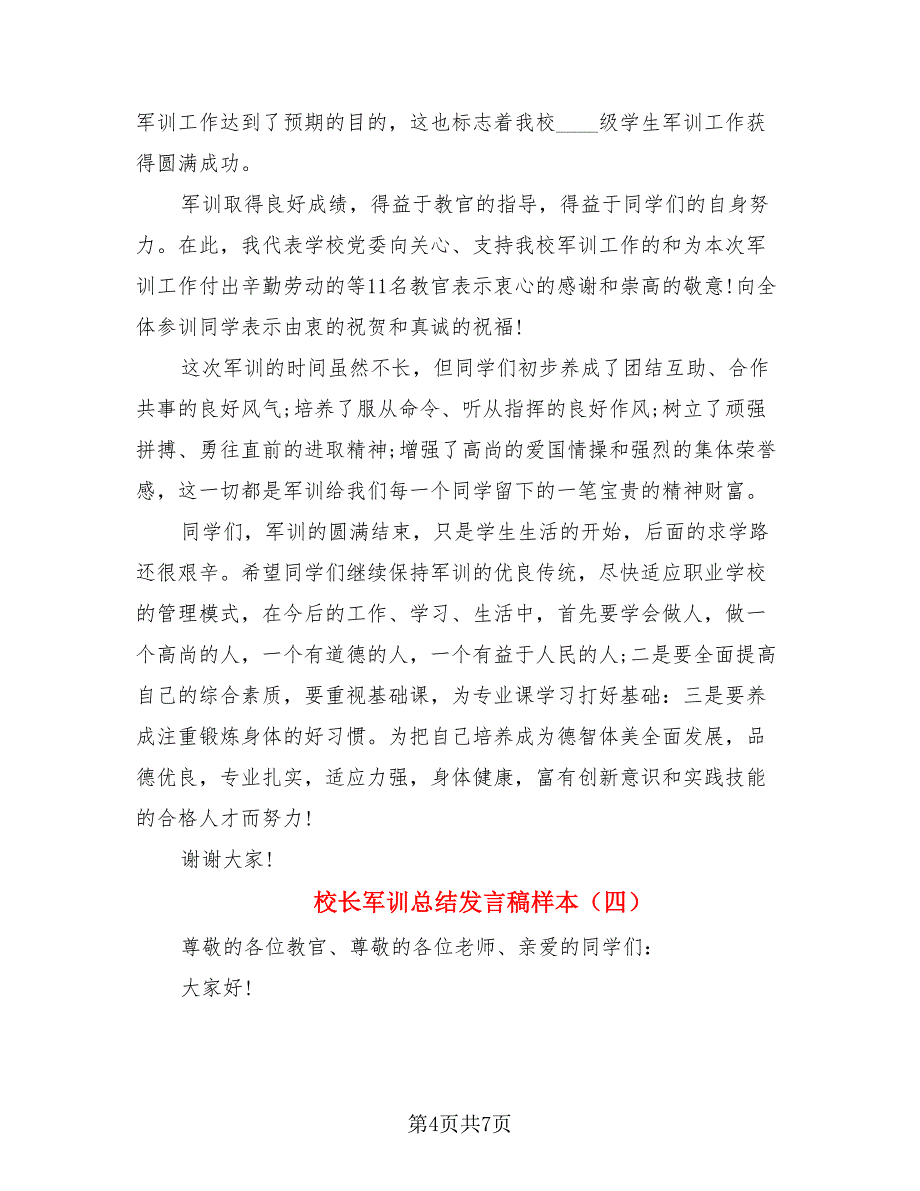 军训工作达到了预期的目的，这也标志着我校____级学生军训工作获
得圆满成功。
军训取得良好成绩，得益于教官的指导，得益于同学们的自身努
力。在此，我代表学校党委向关心、支持我校军训工作的和为本次军
训工作付出辛勤劳动的等11名教官表示衷心的感谢和崇高的敬意!向全
体参训同学表示由衷的祝贺和真诚的祝福!
这次军训的时间虽然不长，但同学们初步养成了团结互助、合作
共事的良好风气;培养了服从命令、听从指挥的良好作风;树立了顽强
拼搏、勇往直前的进取精神;增强了高尚的爱国情操和强烈的集体荣誉
感，这一切都是军训给我们每一个同学留下的一笔宝贵的精神财富。
同学们，军训的圆满结束，只是学生生活的开始，后面的求学路
还很艰辛。希望同学们继续保持军训的优良传统，尽快适应职业学校
的管理模式，在今后的工作、学习、生活中，首先要学会做人，做一
个高尚的人，一个有道德的人，一个有益于人民的人;二是要全面提高
自己的综合素质，要重视基础课，为专业课学习打好基础：三是要养
成注重锻炼身体的好习惯。为把自己培养成为德智体美全面发展，品
德优良，专业扎实，适应力强，身体健康，富有创新意识和实践技能
的合格人才而努力!
谢谢大家!
校长军训总结发言稿样本（四）
尊敬的各位教官、尊敬的各位老师、亲爱的同学们：
大家好!
第4页共7页